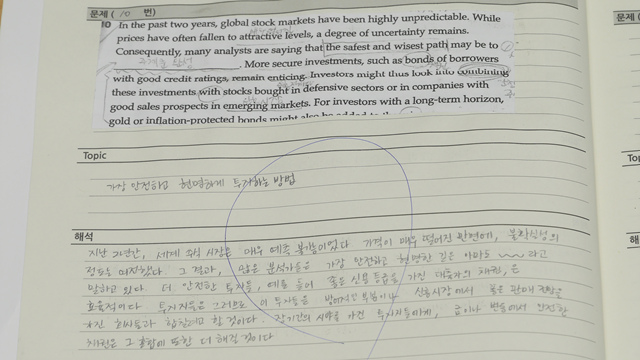 문제 ( 10 번)
문제 (
10 In the past two years, global stock markets have been highly unpredictable. While
prices have often fallen to attractive levels, a degree of uncertainty remains.
Consequently, many analysts are saying that the safest and wisest path may be to
__________. More secure investments, such as bonds of borrowers
with good credit ratings, remain enticing. Investors might thus look into combining
these investments with stocks bought in defensive sectors or in companies with
good sales prospects in emerging markets. For investors with a long-term horizon,
gold or inflation-protected bonds might also be added to the
Topic
가장 안전하고 현명하게 투자하는 방법
해석
지난 2년간, 세계 주식 시장은 매우 예측 불가능이었다 가격이 매우 떨어진 반면에, 불확실성의
정도는 여전했다. 그 결과, 많은 분석가들은 가장 안전하고 현명한 길은 아마도 라고
말하고 있다. 더 안전한 투자들, 예를 들어 좋은 신용등급을 가진 대출자의 채권, 은
효율적이다. 투자자들은 그러므로 이 투자들을 신흥시장에서 좋은 판매 전망을
가진 회사들과 것이다. 장기간의 시야를 가진 투자자들에게, 금이나 안전한
채권은 그 또한 더 해질 것이다
To
해